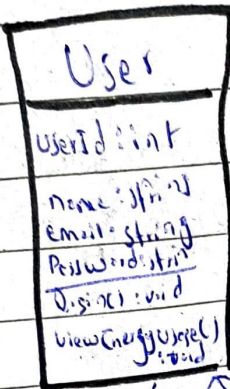 User
userId : int
name : string
email : string
Password : strin
login() : void
viewEnergyUsage()
: void